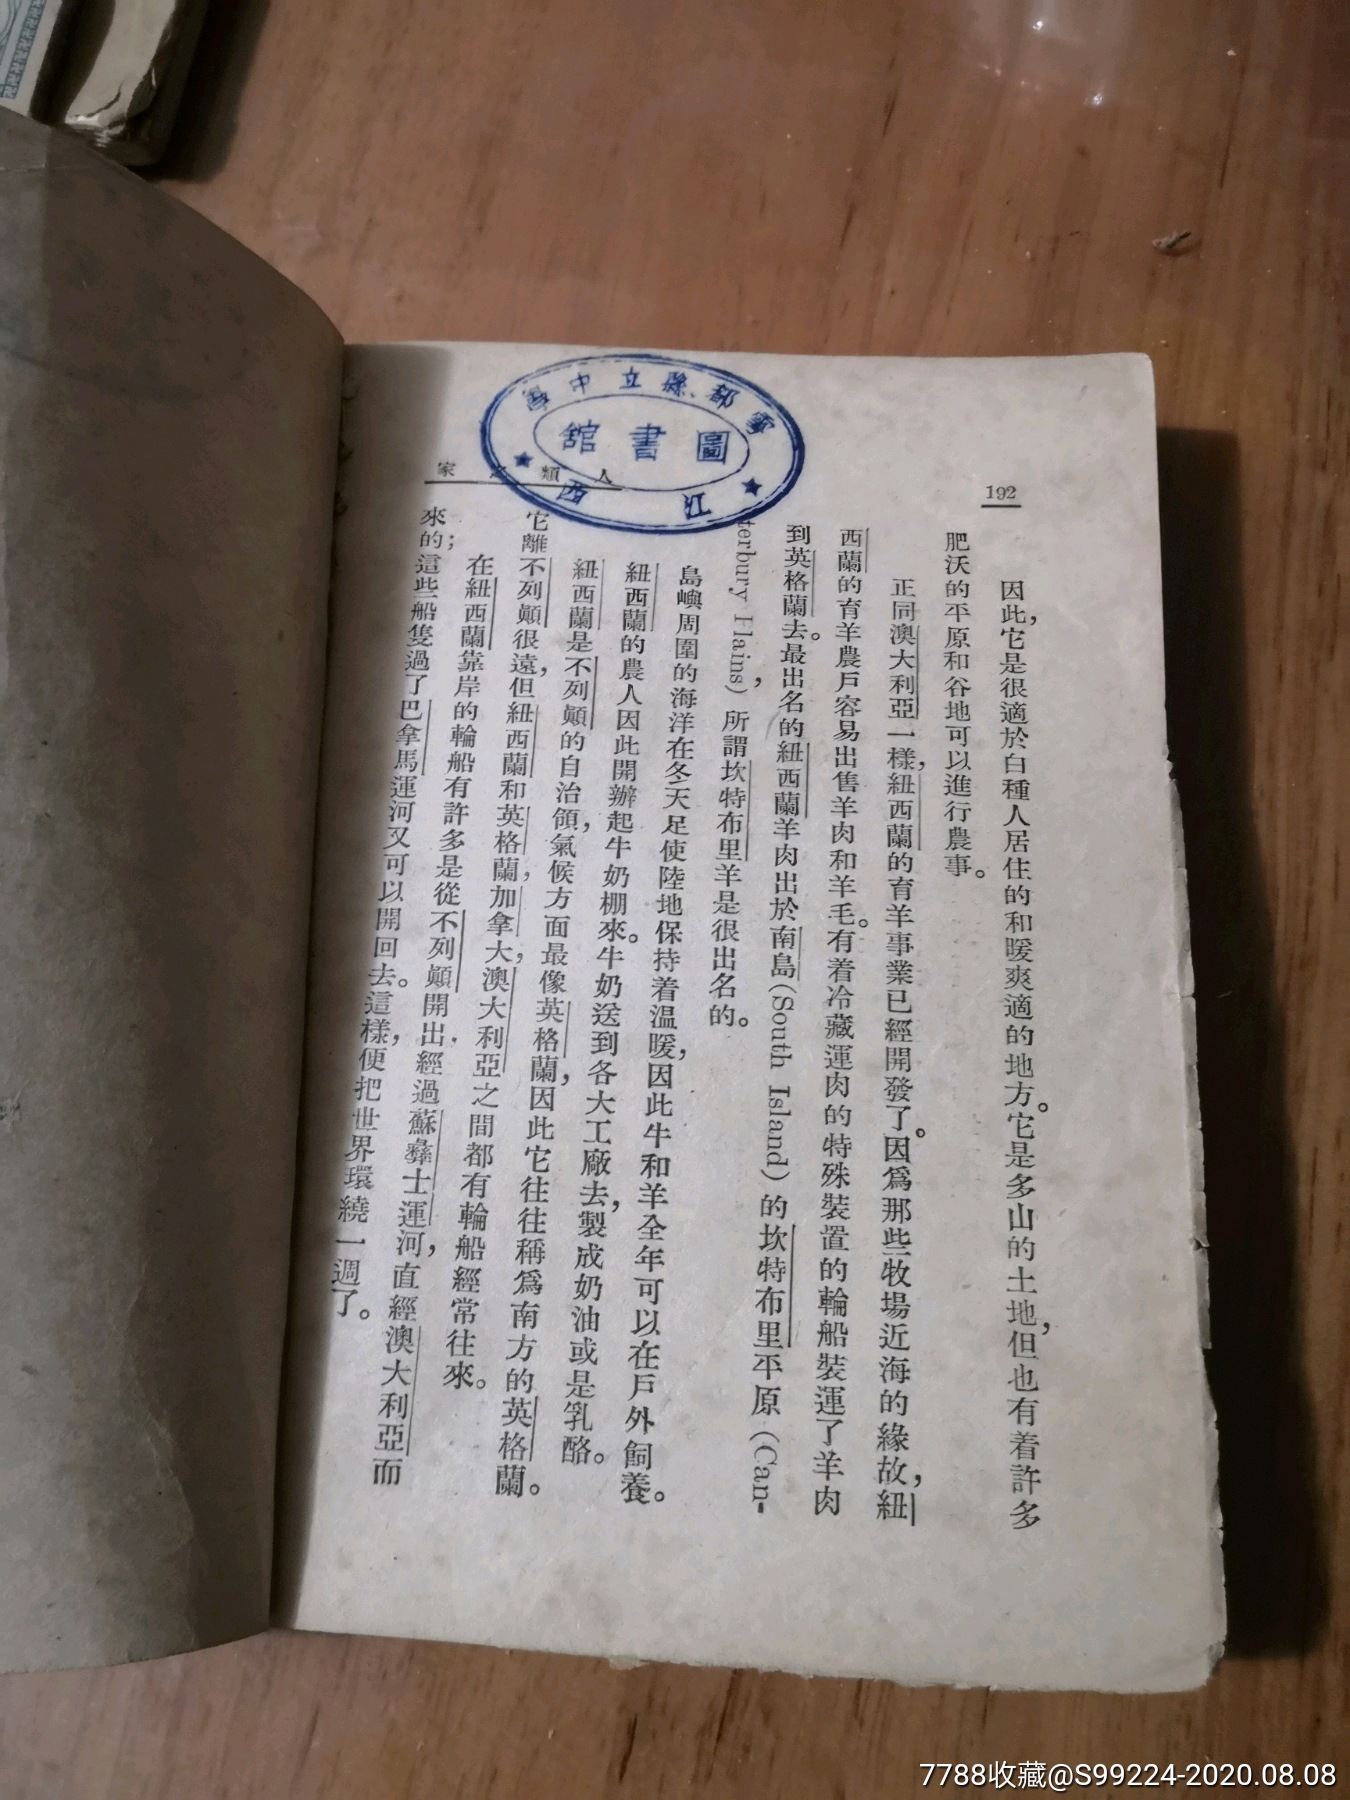 192
人類之家
圖書館
寧都縣立中學
江西
因此,它是很適於白種人居住的和暖爽適的地方。它是多山的土地,但也有着許多
肥沃的平原和谷地可以進行農事。
正同澳大利亞一樣,紐西蘭的育羊事業已經開發了。因爲那些牧場近海的緣故,紐
西蘭的育羊農戶容易出售羊肉和羊毛。有着冷藏運肉的特殊裝置的輪船裝運了羊肉
到英格蘭去。最出名的紐西蘭羊肉出於南島(South Island)的坎特布里平原(Can-
terbury Plains),所謂坎特布里羊是很出名的。
島嶼周圍的海洋在冬天足使陸地保持着溫暖,因此牛和羊全年可以在戶外飼養。
紐西蘭的農人因此開辦起牛奶棚來。牛奶送到各大工廠去,製成奶油或是乳酪。
紐西蘭是不列顛的自治領,氣候方面最像英格蘭,因此它往往稱爲南方的英格蘭。
它離不列顛很遠,但紐西蘭和英格蘭,加拿大,澳大利亞之間都有輪船經常往來。
在紐西蘭靠岸的輪船有許多是從不列顛開出,經過蘇彝士運河,直經澳大利亞而
來的;這些船隻過了巴拿馬運河又可以開回去。這樣,便把世界環繞一週了。
7788收藏@S99224-2020.08.08